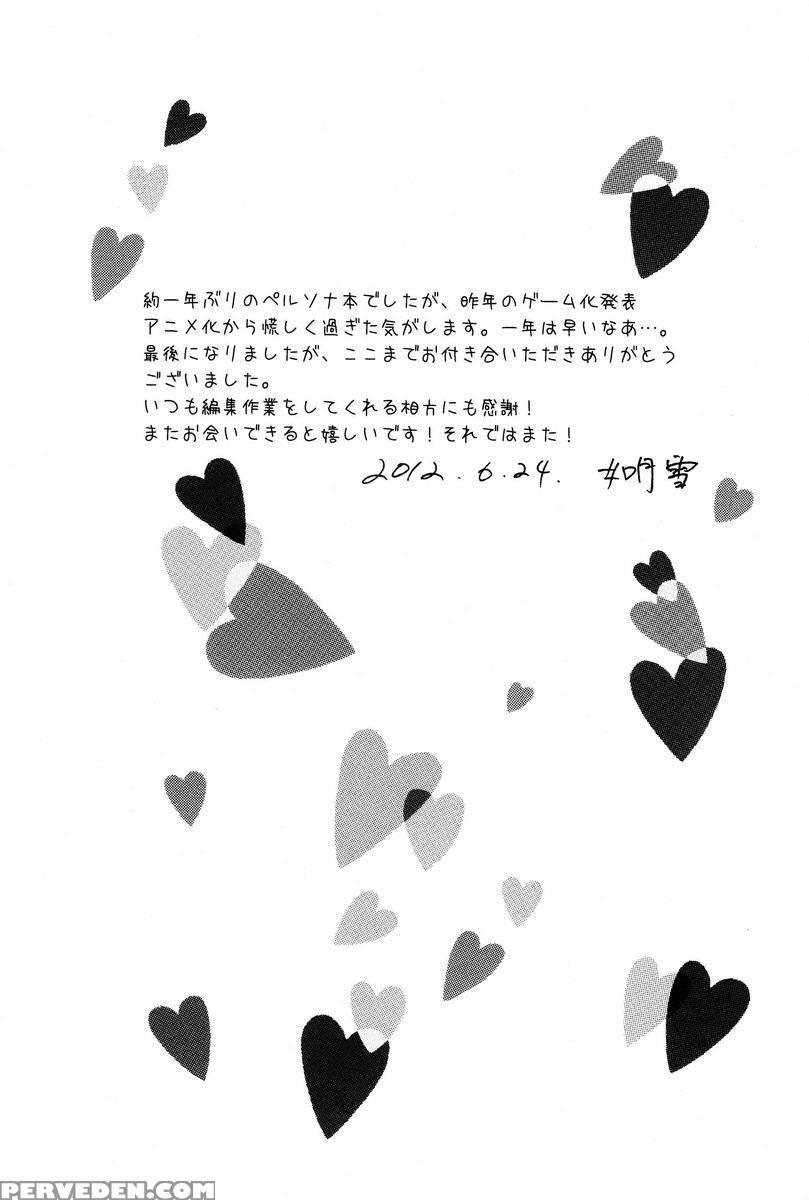 約一年ぶりのペルソナ本でしたが、昨年のゲーム化発表
アニメ化から慌しく過ぎた気がします。一年は早いなあ…。
最後になりましたが、ここまでお付き合いただきありがとう
ございました。
いつも編集作業をしてくれる相方にも感謝！
またお会いできると嬉しいです！それではまた！
2012.6.24.
PERVEDEN.COM